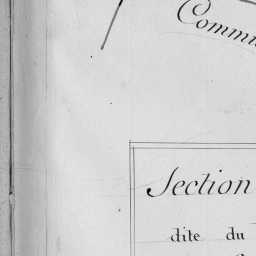 Commu
Section
dite du